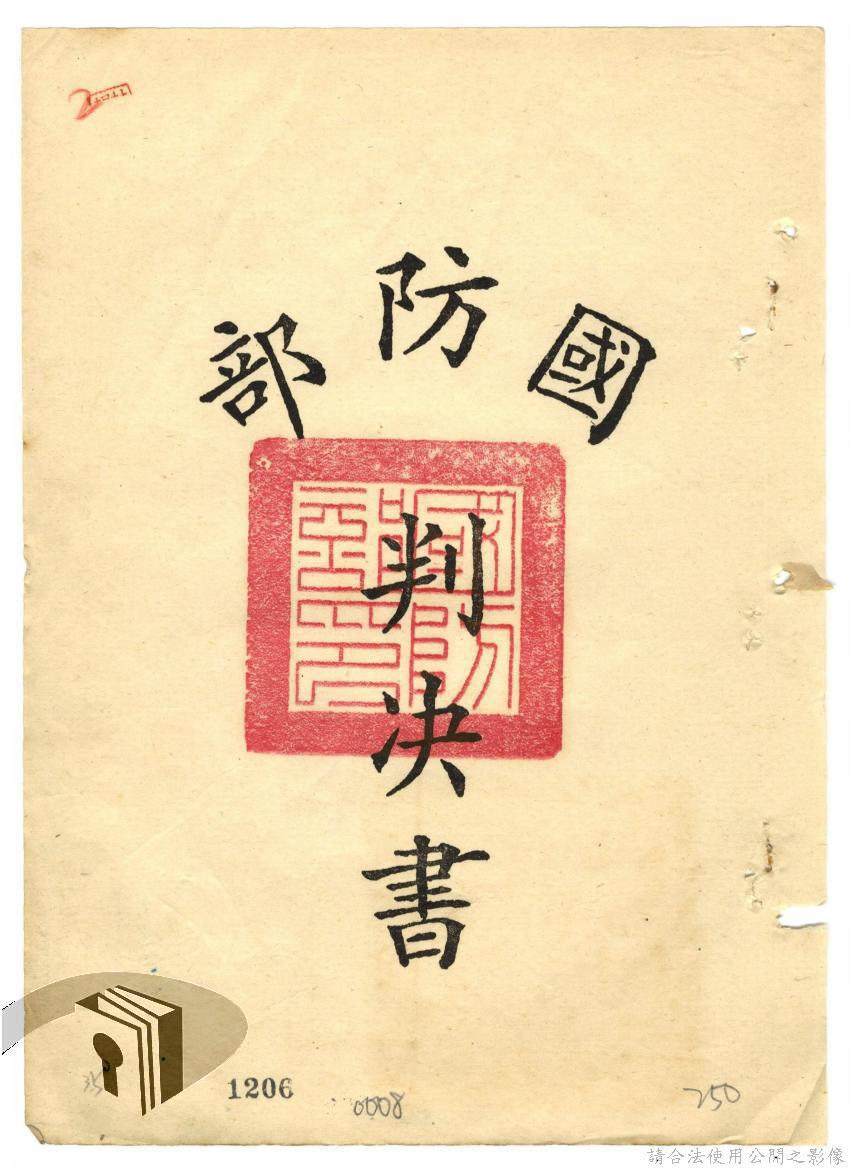 國防部
判決書
1206
0008
250
請合法使用公開之影像